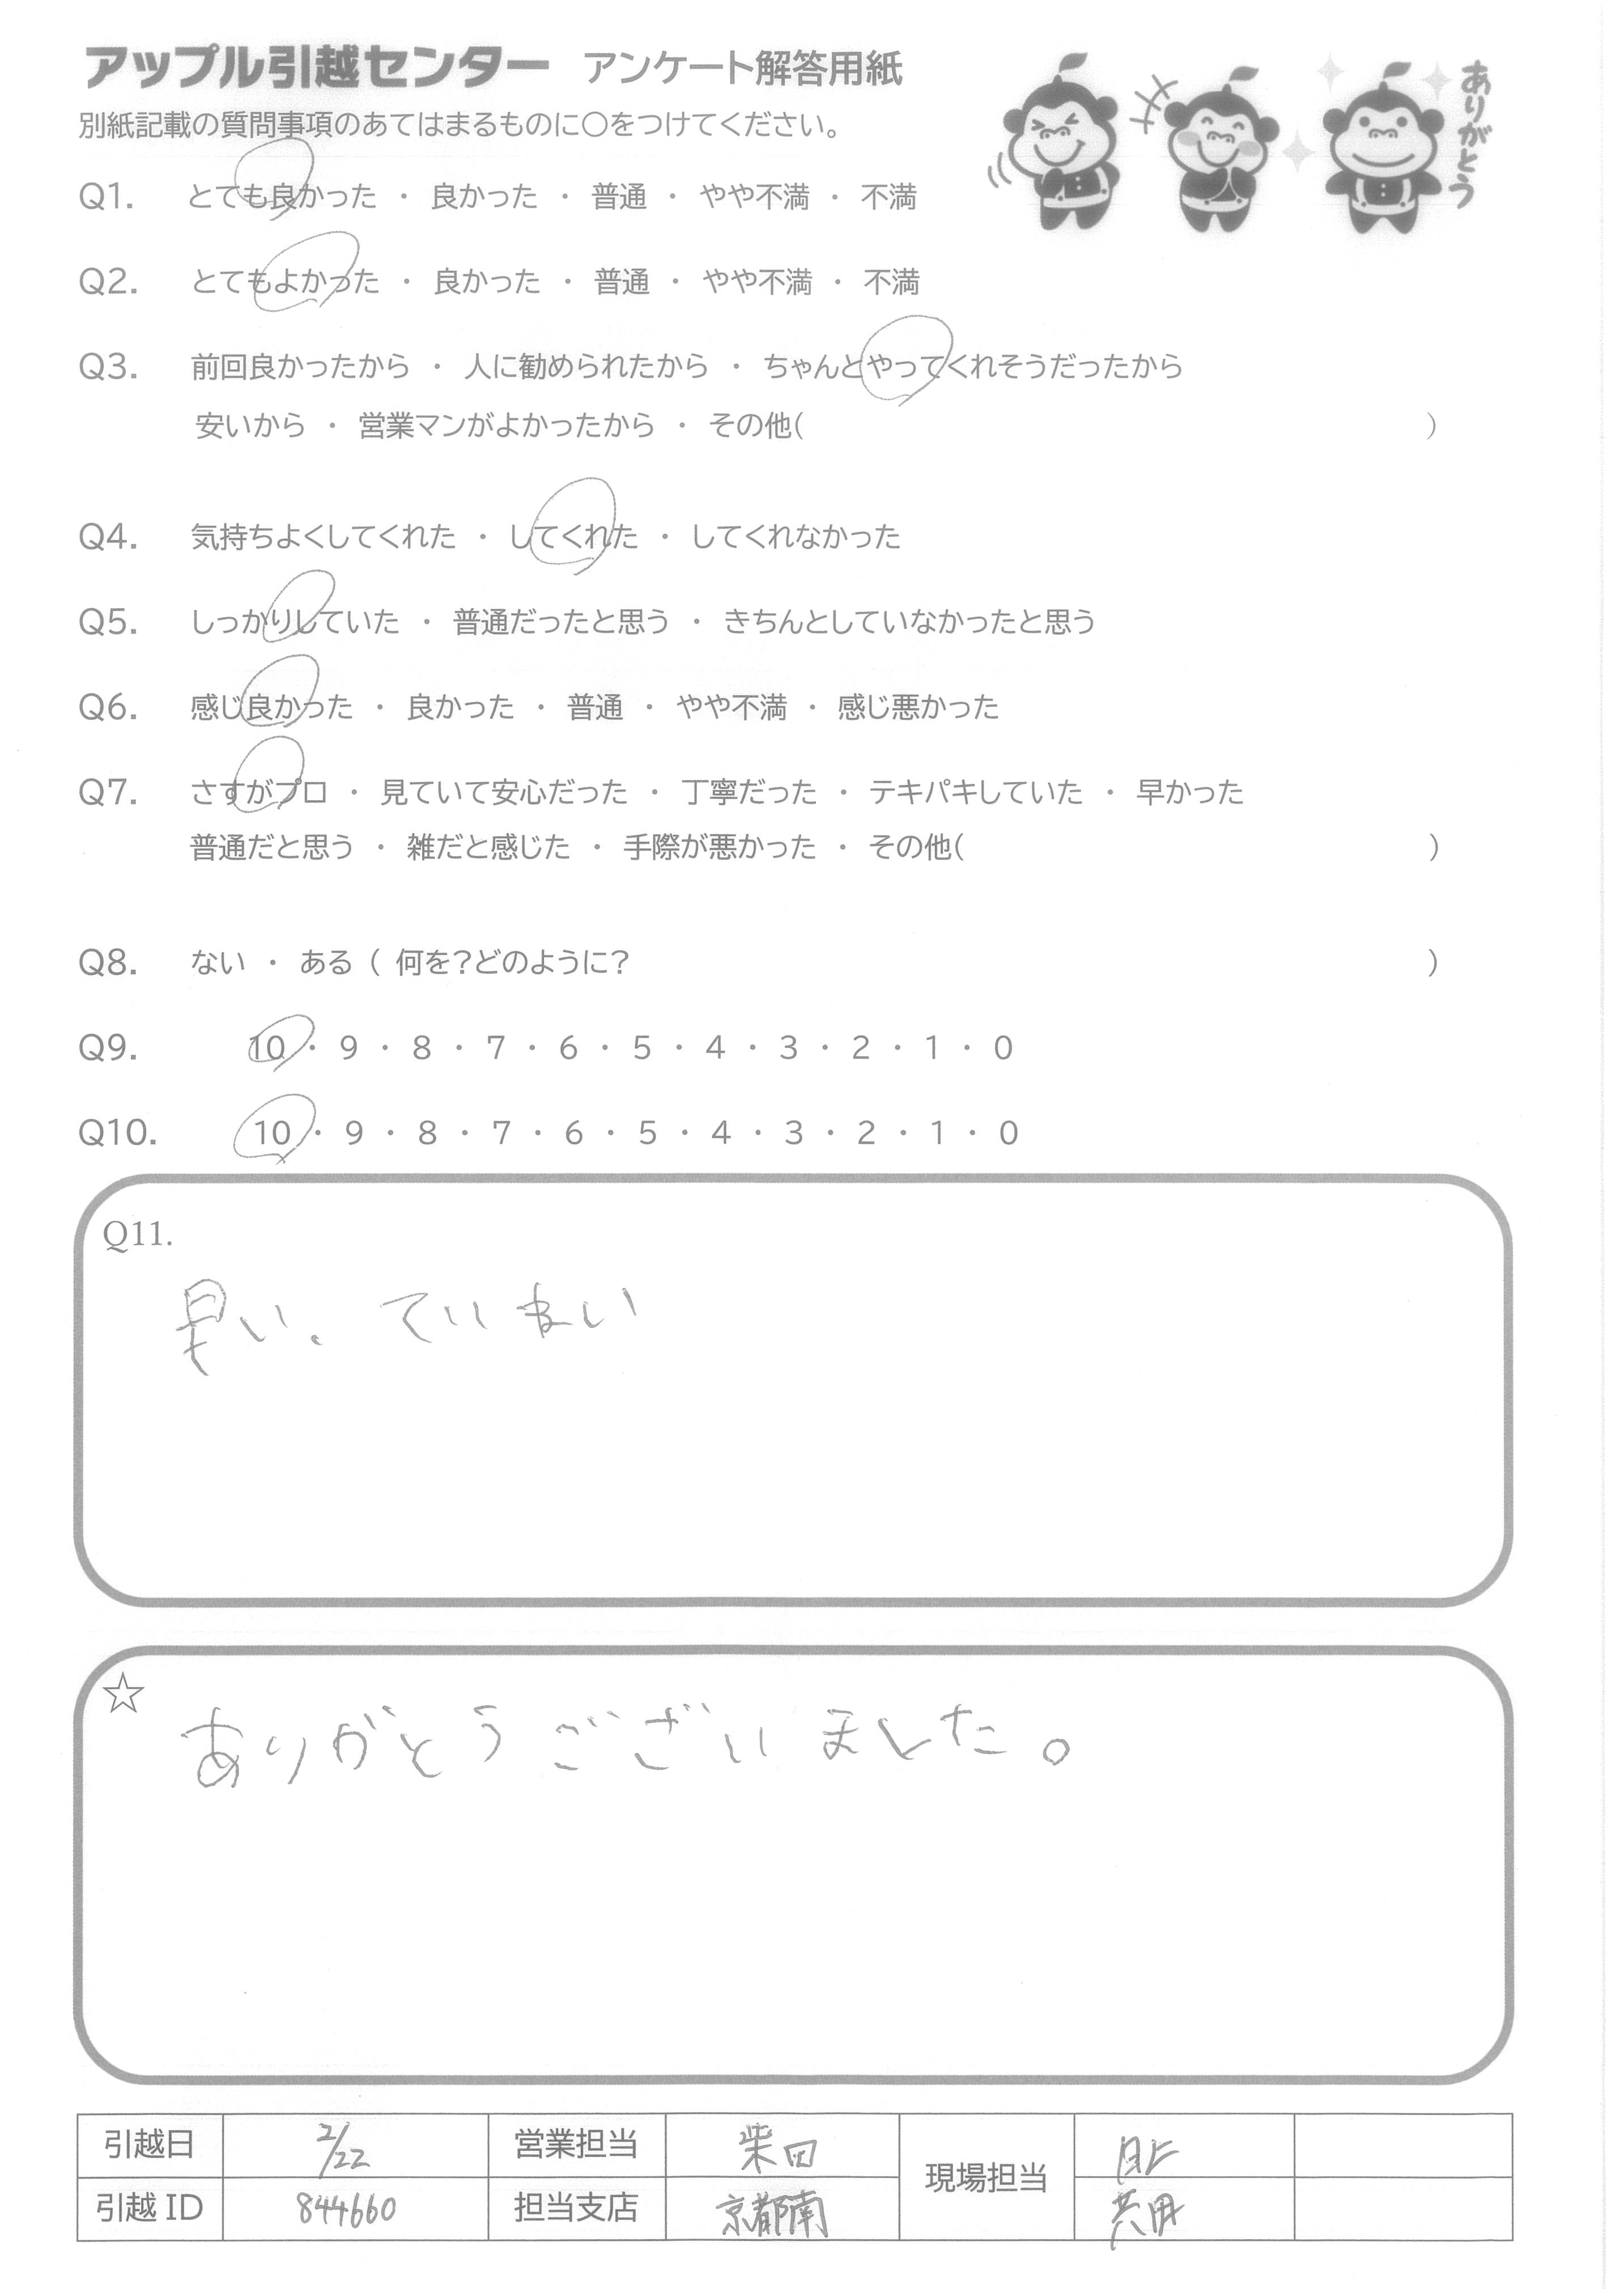 アップル引越センター アンケート解答用紙
別紙記載の質問事項のあてはまるものに〇をつけてください。
ありがとう
Q1. とても良かった ・ 良かった ・ 普通 ・ やや不満 ・ 不満
Q2. とてもよかった ・ 良かった ・ 普通 ・ やや不満 ・ 不満
Q3. 前回良かったから ・ 人に勧められたから ・ ちゃんとやってくれそうだったから
安いから ・ 営業マンがよかったから ・ その他( )
Q4. 気持ちよくしてくれた ・ してくれた ・ してくれなかった
Q5. しっかりしていた ・ 普通だったと思う ・ きちんとしていなかったと思う
Q6. 感じ良かった ・ 良かった ・ 普通 ・ やや不満 ・ 感じ悪かった
Q7. さすがプロ ・ 見ていて安心だった ・ 丁寧だった ・ テキパキしていた ・ 早かった
普通だと思う ・ 雑だと感じた ・ 手際が悪かった ・ その他( )
Q8. ない ・ ある ( 何を?どのように? )
Q9. 10 ・ 9 ・ 8 ・ 7 ・ 6 ・ 5 ・ 4 ・ 3 ・ 2 ・ 1 ・ 0
Q10. 10 ・ 9 ・ 8 ・ 7 ・ 6 ・ 5 ・ 4 ・ 3 ・ 2 ・ 1 ・ 0
Q11.
早い、ていねい
☆
ありがとうございました。
引越日 2/22 営業担当 柴田 現場担当
引越ID 844660 担当支店 京都南